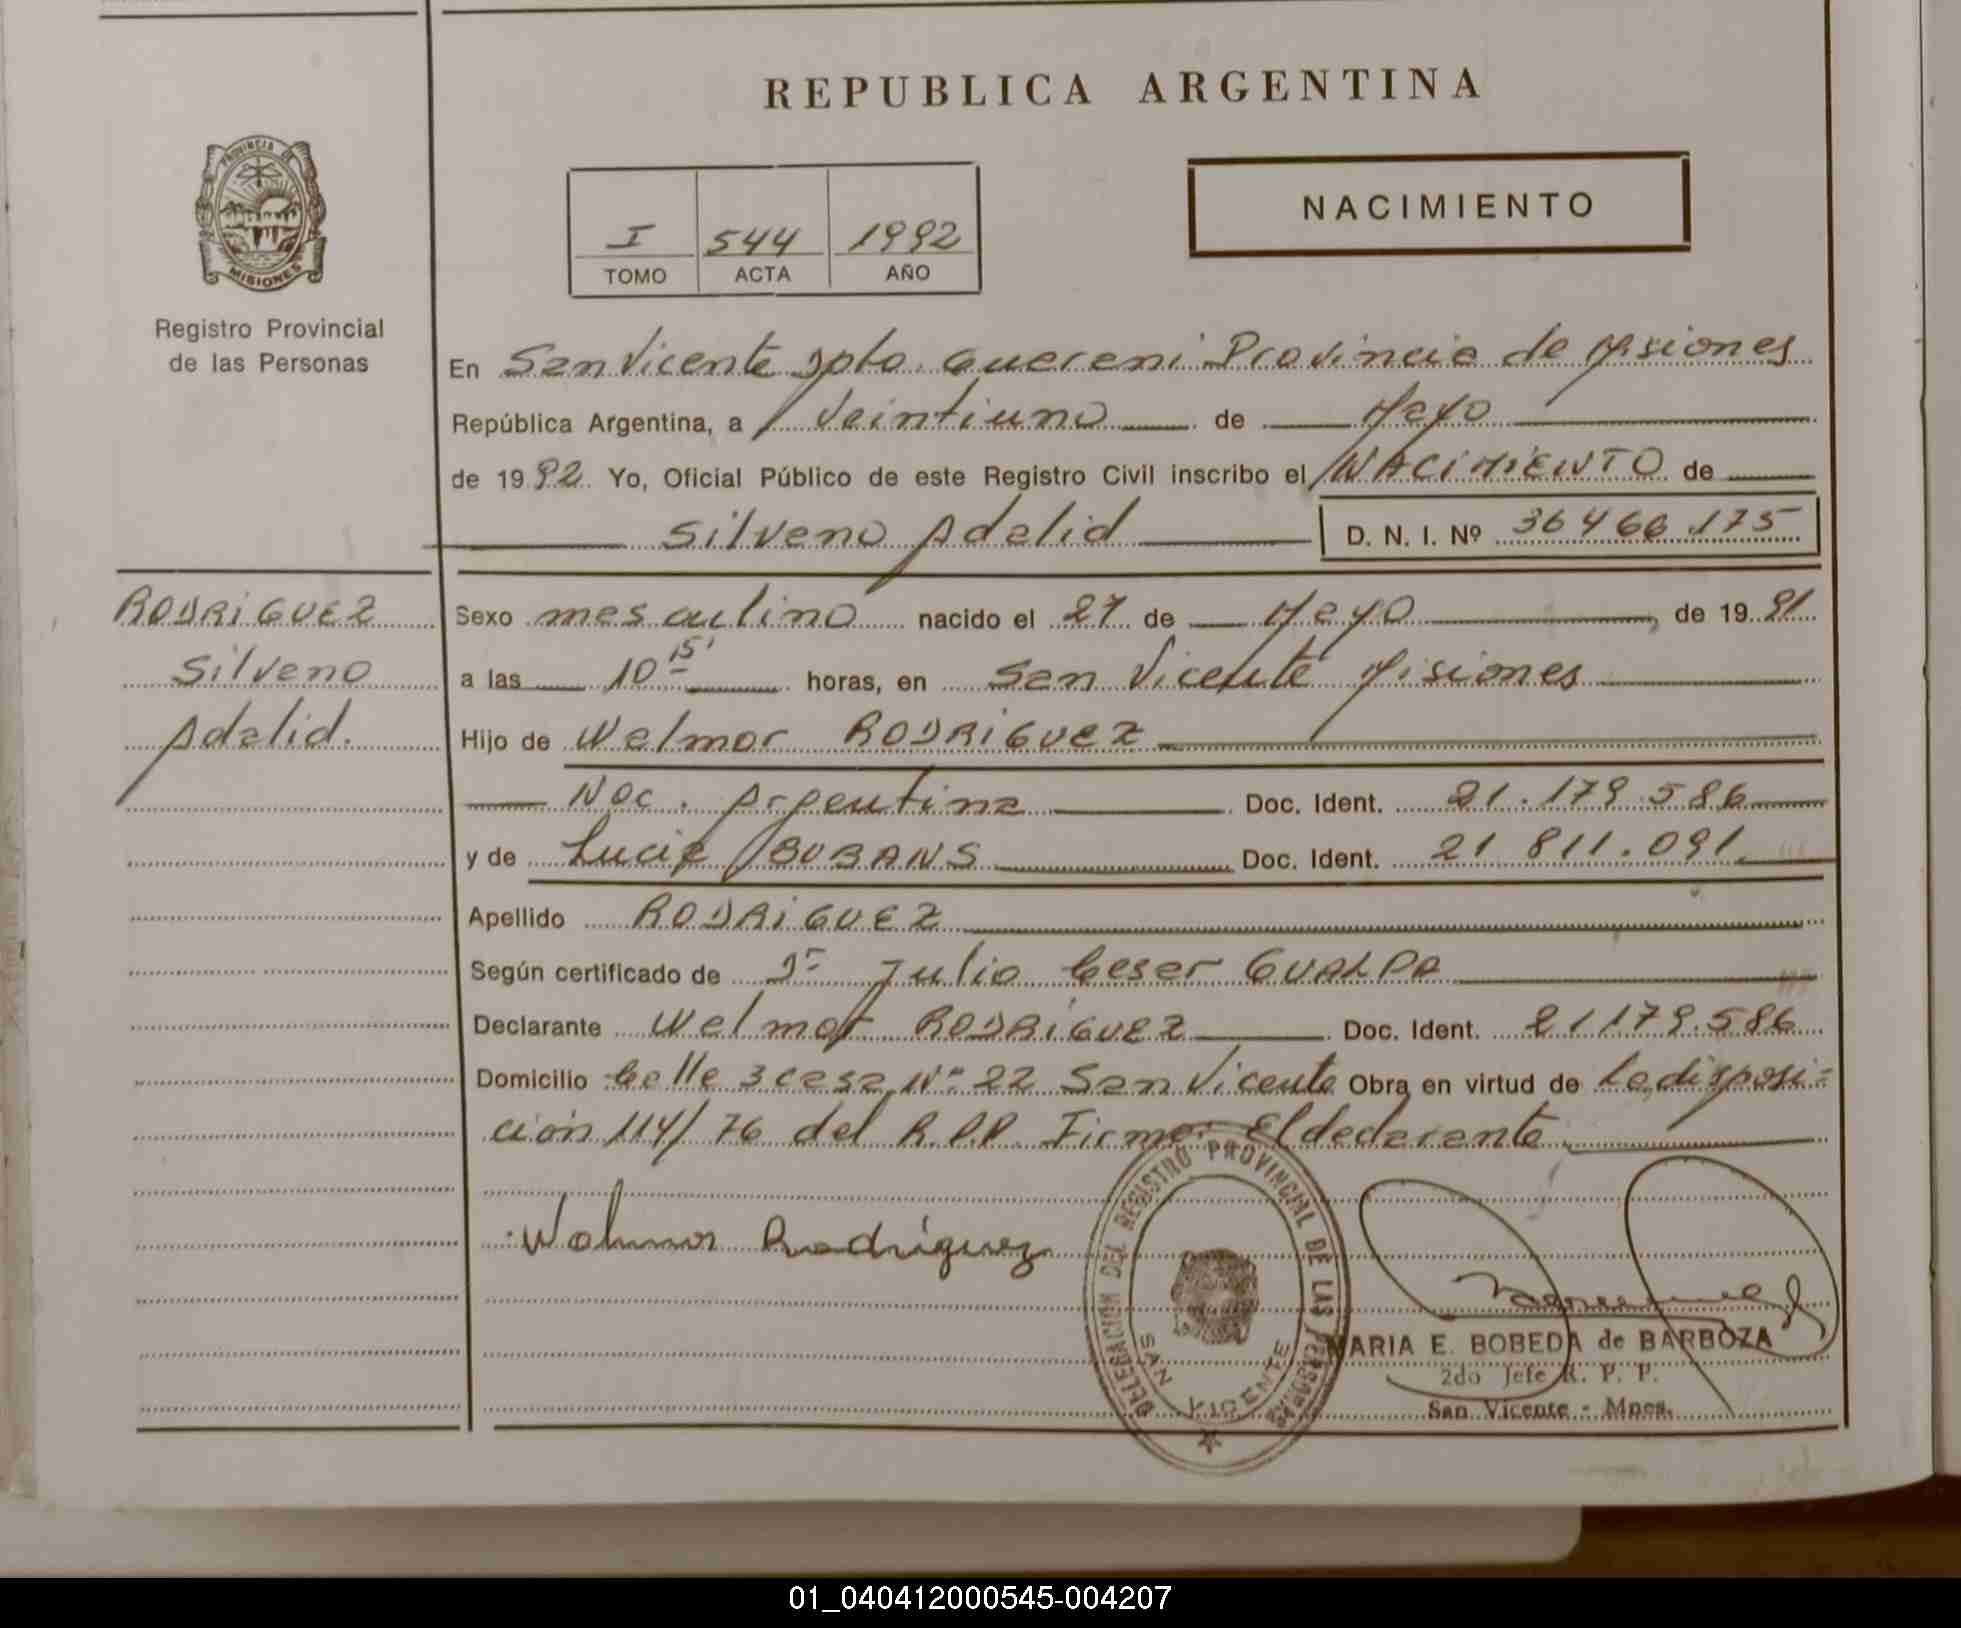 REPUBLICA ARGENTINA
PROVINCIA DE MISIONES
Registro Provincial
de las Personas
I 544 1992
TOMO ACTA AÑO
NACIMIENTO
En San Vicente Dpto. Guaraní Provincia de Misiones
República Argentina, a veintiuno de Mayo
de 1992. Yo, Oficial Público de este Registro Civil inscribo el NACIMIENTO de
Silveno Adelid D. N. I. Nº 36466.175
RODRIGUEZ
Silveno
Adelid.
Sexo masculino nacido el 27 de Mayo, de 1991
a las 10 15' horas, en San Vicente Misiones
Hijo de Welmor RODRIGUEZ
Nac. Argentina Doc. Ident. 21.179.586
y de Lucia BUBANS Doc. Ident. 21 811.091
Apellido RODRIGUEZ
Según certificado de Dr Julio Cesar GUALPA
Declarante Welmor RODRIGUEZ Doc. Ident. 21179.586
Domicilio Calle 3 casa Nº 22 San Vicente Obra en virtud de la disposi-
ción 114/76 del R.P.P. Firma: El declarante
Wolmor Rodríguez
DELEGACION DEL REGISTRO PROVINCIAL DE LAS PERSONAS
SAN VICENTE
MARIA E. BOBEDA de BARBOZA
2do Jefe R. P. P.
San Vicente - Mnes.
01_040412000545-004207